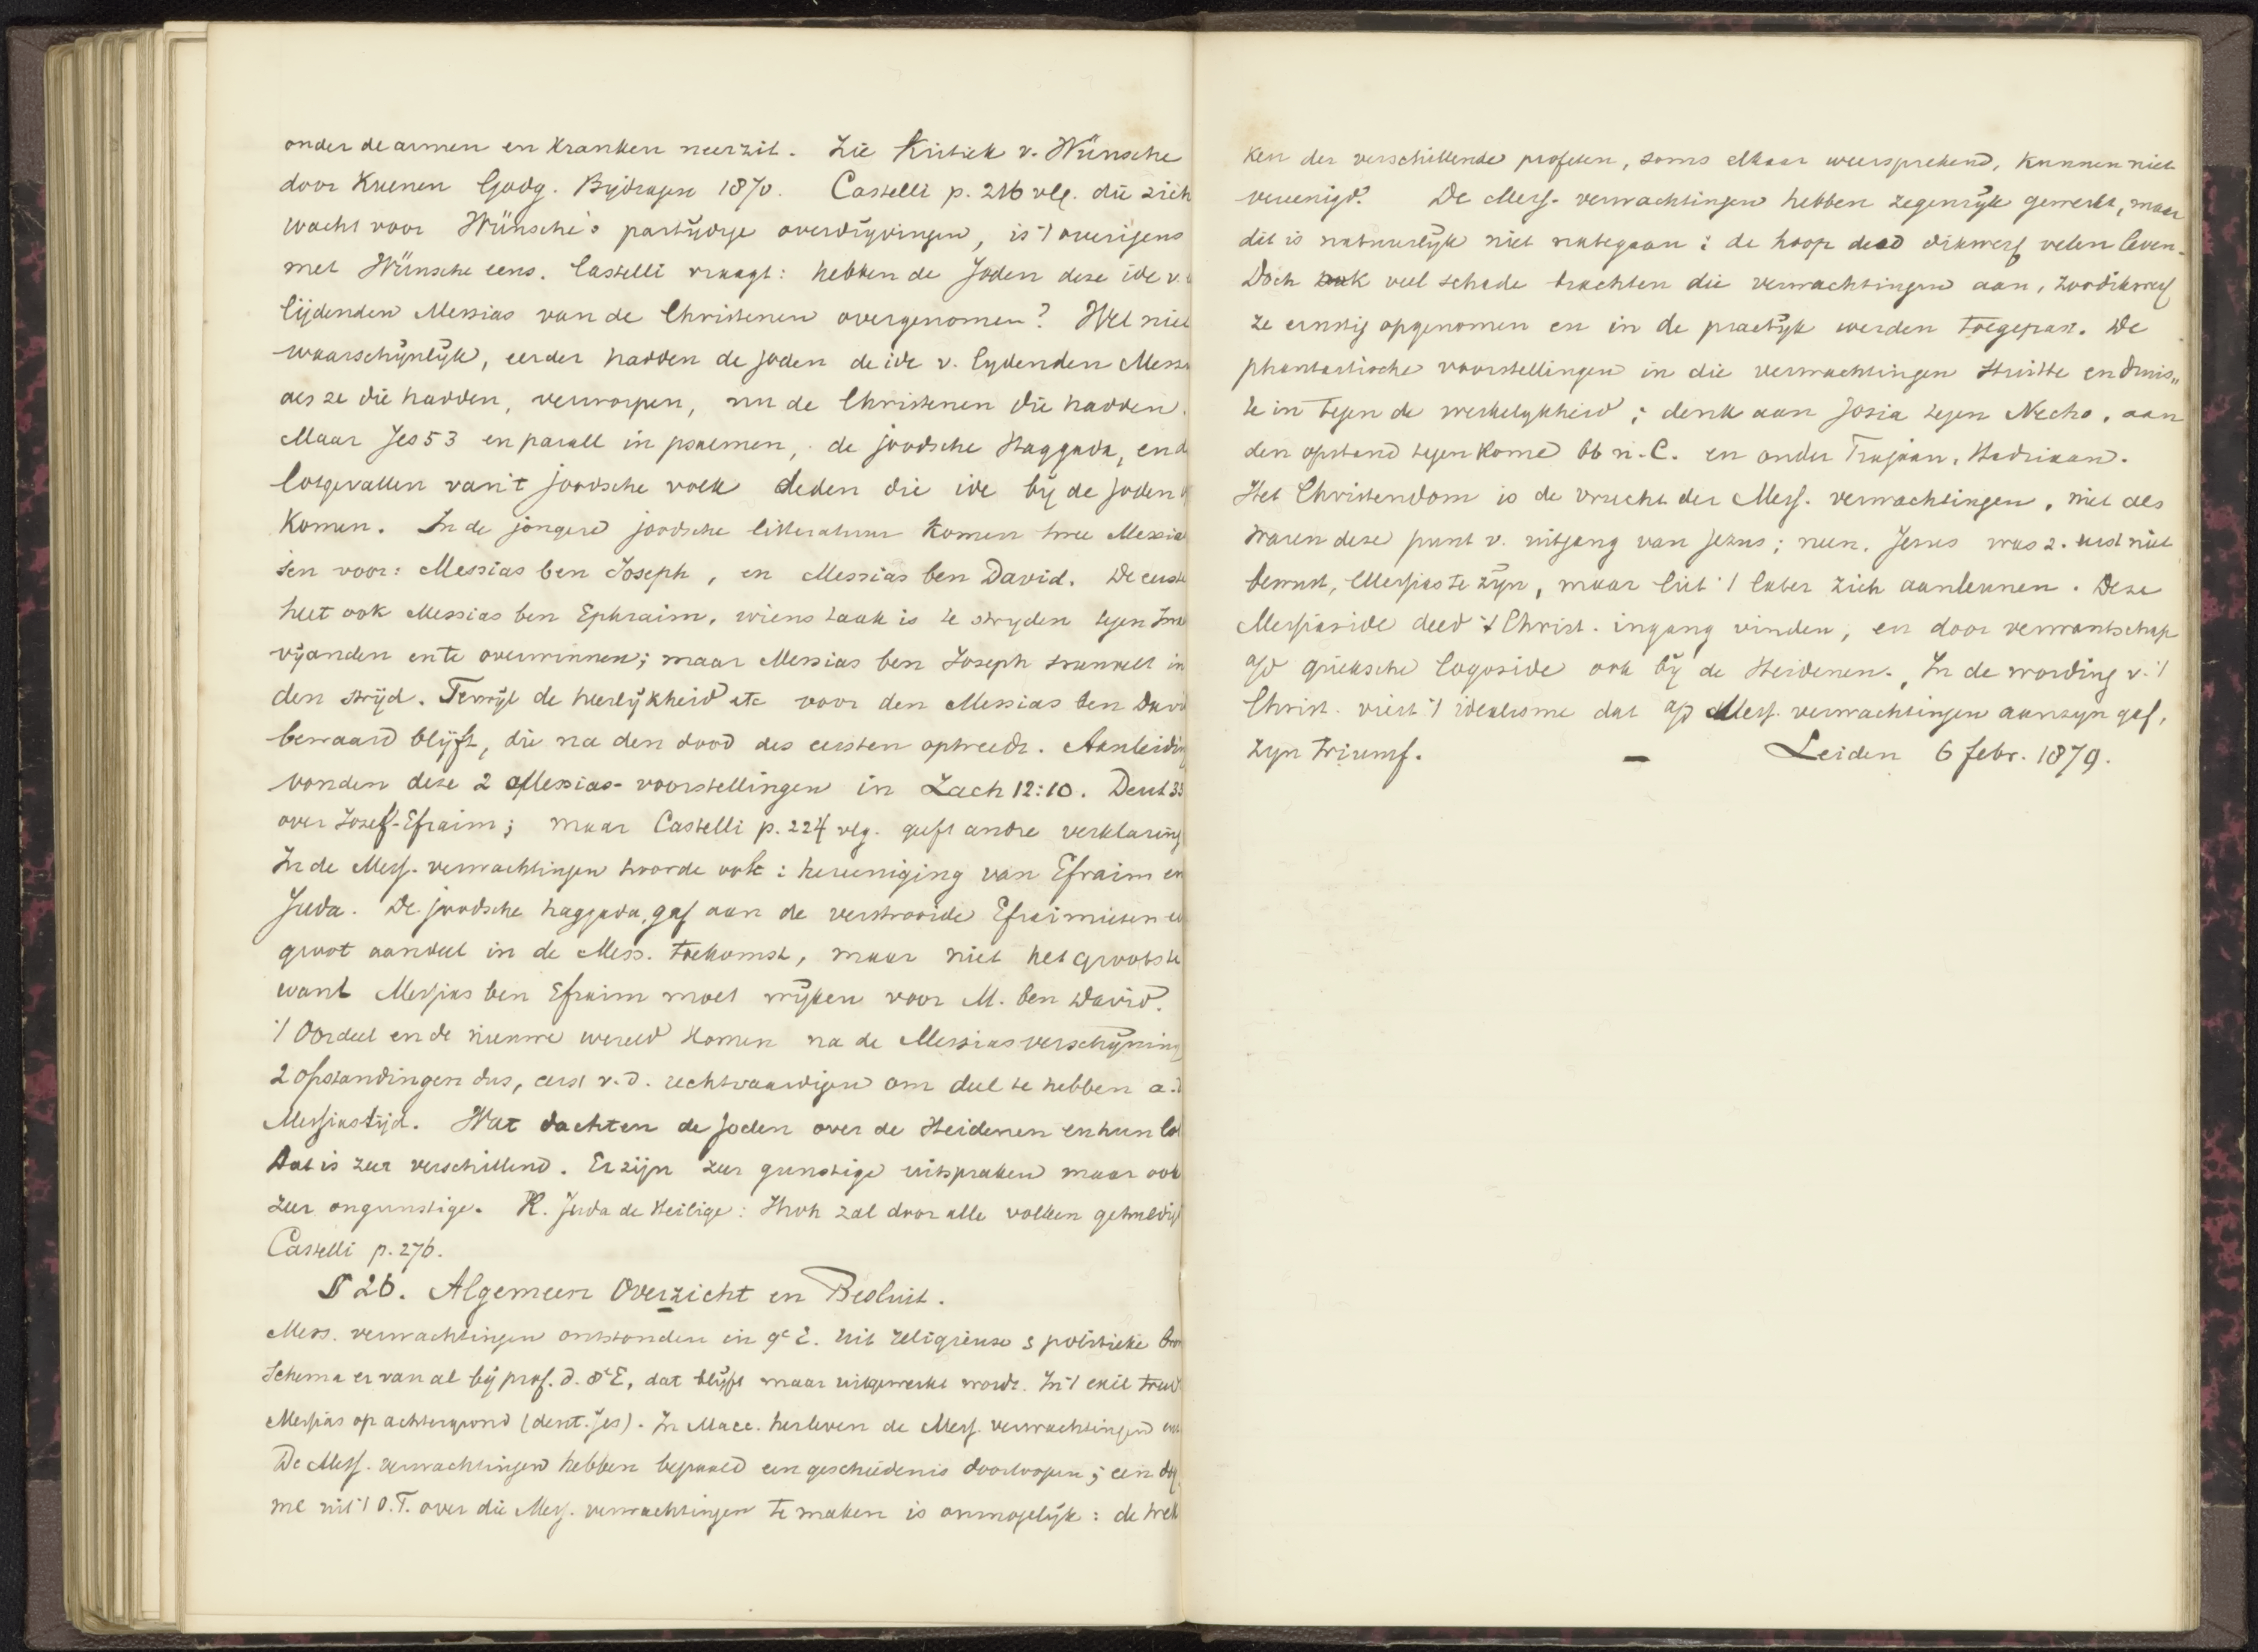 onder de armen en kranken neerzit. Zie Kritiek v. Wünsche
door Kuenen Godg. Bijdragen 1870. Castelli p. 216 vlg. die zich
wacht voor Wünsche's partijdige overdrijvingen, is 't overigens
met Wünsche eens. Castelli vraagt: hebben de Joden deze ide v.
lijdenden Messias van de Christenen overgenomen? Wel niet
waarschijnlijk, eerder hadden de joden de ide v. lydenden Mess
als ze die hadden, verworpen, nu de Christenen die hadden.
Maar Jes 53 en parall in psalmen, de joodsche Haggada, en d
lotgevallen van 't joodsche volk deden die ide bij de joden
komen. In de jongere joodsche litteratuur komen twee Messia
sen voor: Messias ben Joseph, en Messias ben David. De eerste
heet ook Messias ben Ephraim, wiens taak is te stryden tegen
vijanden en te overwinnen; maar Messias ben Joseph sneuvelt in
den strijd. Terwijl de heerlijkheid etc voor den Messias ben David
bewaard blijft, die na den dood des eersten optreedt. Aanleiding
vonden deze 2 Messias-voorstellingen in Zach 12:10. Deut 33
over Jozef-Efraim; maar Castelli p. 224 vlg. geeft andre verklaring
In de Mess. verwachtingen hoorde ook: hereeniging van Efraim en
Juda. De joodsche haggada, gaf aan de verstrooide Efraimieten e
groot aandeel in de Mess. toekomst, maar niet het grootste
want Messias ben Efraim moet wijken voor M. ben David.
't Oordeel en de nieuwe wereld komen na de Messiasverschijning
2 opstandingen dus, eerst v.d. rechtvaardigen om deel te hebben a.d
Messiastijd. Wat dachten de joden over de Heidenen en hun lot
Dat is zeer verschillend. Er zijn zeer gunstige uitspraken maar ook
zeer ongunstige. R. Juda de Heilige: Jhvh zal door alle volken gehuldigd
Castelli p. 276.
§ 26. Algemeen Overzicht en Besluit.
Mess. verwachtingen ontstonden in 9e E. uit religieuse & politieke bron
Schema er van al bij prof. d. 8e E, dat blijft maar uitgewerkt wordt. In 't exil treed
Messias op achtergrond (deut. Jes). In Macc. herleven de Mess. verwachtingen
De Mess. verwachtingen hebben bepaald een geschiedenis doorloopen; een dog
me uit 't O.T. over die Mess. verwachtingen te maken is onmogelijk: de trek
ken der verschillende profeten, soms elkaar weersprekend, kunnen niet
vereenigd. De Mess. verwachtingen hebben zegenrijk gewerkt, maar
dit is natuurlijk niet nategaan: de hoop deed dikwerf velen leven.
Doch ook veel schade brachten die verwachtingen aan, zoodikwerf
ze ernstig opgenomen en in de practijk werden toegepast. De
phantastische voorstellingen in die verwachtingen stuitte en druis„
te in tegen de werkelykheid; denk aan Josia tegen Necho, aan
den opstand tegen Rome 66 n.C. en onder Trajaan, Hadriaan.
Het Christendom is de vrucht der Mess. verwachtingen, niet als
waren deze punt v. uitgang van Jezus; neen. Jezus was z. eerst niet
bewust, Messias te zijn, maar liet 't later zich aanleunen. Deze
Messiaside deed 't Christ. ingang vinden, en door verwantschap
a/d grieksche logoside ook bij de Heidenen. In de wording v. 't
Christ. viert 't idealisme dat a/d Mess. verwachtingen aanzyn gaf,
zyn triumf. — Leiden 6 febr. 1879.